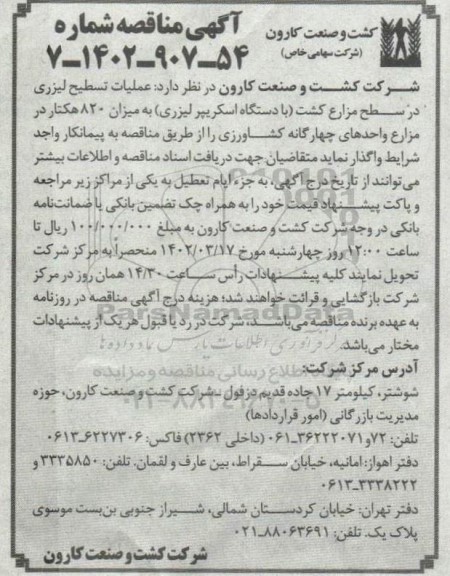 کشت و صنعت کارون
(شرکت سهامی خاص)
آگهی مناقصه شماره
۵۴ــ۹۰۷ــ۱۴۰۲ــ۷
شرکت کشت و صنعت کارون در نظر دارد: عملیات تسطیح لیزری
در سطح مزارع کشت (با دستگاه اسکریپر لیزری) به میزان ۸۲۰ هکتار در
مزارع واحدهای چهارگانه کشاورزی را از طریق مناقصه به پیمانکار واجد
شرایط واگذار نماید متقاضیان جهت دریافت اسناد مناقصه و اطلاعات بیشتر
می‌توانند از تاریخ درج آگهی، به جزء ایام تعطیل به یکی از مراکز زیر مراجعه
و پاکت پیشنهاد قیمت خود را به همراه چک تضمین بانکی یا ضمانت‌نامه
بانکی در وجه شرکت کشت و صنعت کارون به مبلغ ۱۰۰/۰۰۰/۰۰۰ ریال تا
ساعت ۱۲:۰۰ روز چهارشنبه مورخ ۱۴۰۲/۰۳/۱۷ منحصراً به مرکز شرکت
تحویل نمایند کلیه پیشنهادات رأس ساعت ۱۴/۳۰ همان روز در مرکز
شرکت بازگشایی و قرائت خواهند شد؛ هزینه درج آگهی مناقصه در روزنامه
به عهده برنده مناقصه می‌باشد، شرکت در رد یا قبول هر یک از پیشنهادات
مختار می‌باشد.
آدرس مرکز شرکت:
شوشتر، کیلومتر ۱۷ جاده قدیم دزفول ـ شرکت کشت و صنعت کارون، حوزه
مدیریت بازرگانی (امور قراردادها)
تلفن: ۷۲و۳۶۲۲۲۰۷۱ـ۰۶۱ (داخلی ۲۳۶۲) فاکس: ۶۲۲۷۳۰۶ـ۰۶۱۳
دفتر اهواز: امانیه، خیابان سقراط، بین عارف و لقمان. تلفن: ۳۳۳۵۸۵۰ و
۳۳۳۸۲۲۲ـ۰۶۱۳
دفتر تهران: خیابان کردستان شمالی، شیراز جنوبی بن‌بست موسوی
پلاک یک. تلفن: ۸۸۰۶۳۶۹۱ـ۰۲۱
شرکت کشت و صنعت کارون
ParsNamadData